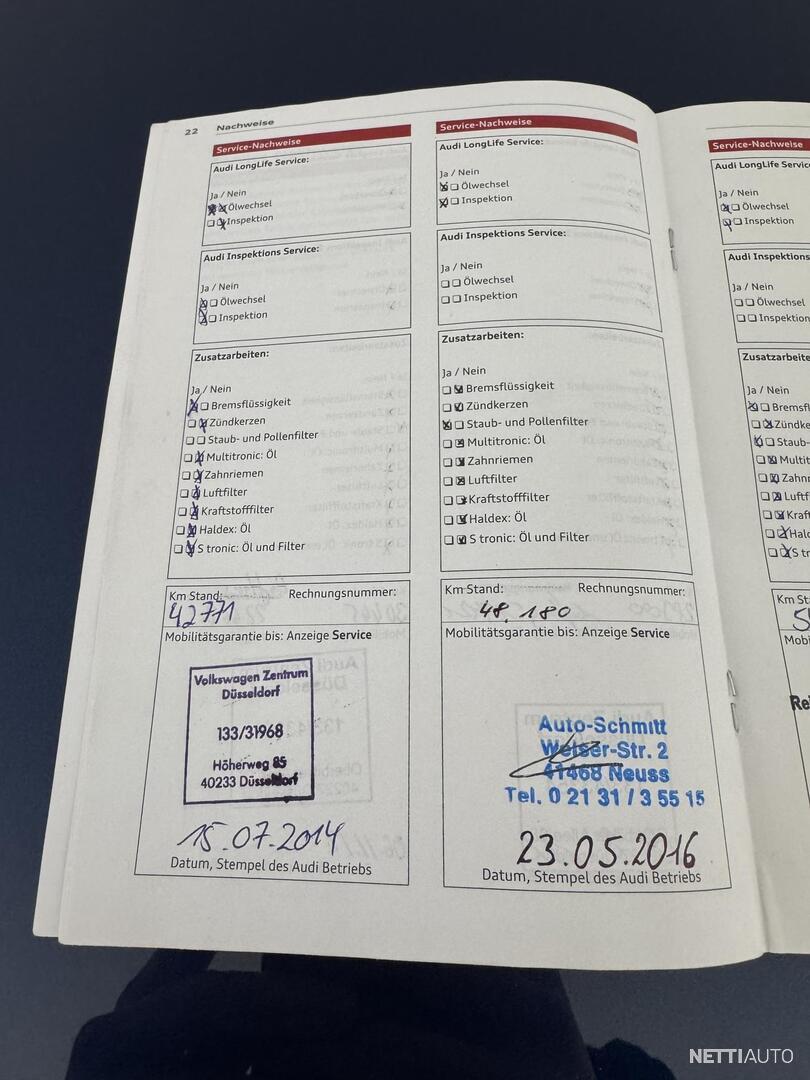 22 Nachweise
Service-Nachweise
Audi LongLife Service:
Ja / Nein
Ölwechsel
Inspektion
Audi Inspektions Service:
Ja / Nein
Ölwechsel
Inspektion
Zusatzarbeiten:
Ja / Nein
Bremsflüssigkeit
Zündkerzen
Staub- und Pollenfilter
Multitronic: Öl
Zahnriemen
Luftfilter
Kraftstofffilter
Haldex: Öl
S tronic: Öl und Filter
Km Stand: Rechnungsnummer:
42771
Mobilitätsgarantie bis: Anzeige Service
Volkswagen Zentrum
Düsseldorf
133/31968
Höherweg 85
40233 Düsseldorf
15.07.2014
Datum, Stempel des Audi Betriebs
Service-Nachweise
Audi LongLife Service:
Ja / Nein
Ölwechsel
Inspektion
Audi Inspektions Service:
Ja / Nein
Ölwechsel
Inspektion
Zusatzarbeiten:
Ja / Nein
Bremsflüssigkeit
Zündkerzen
Staub- und Pollenfilter
Multitronic: Öl
Zahnriemen
Luftfilter
Kraftstofffilter
Haldex: Öl
S tronic: Öl und Filter
Km Stand: Rechnungsnummer:
48.180
Mobilitätsgarantie bis: Anzeige Service
Auto-Schmitt
Welser-Str. 2
41468 Neuss
Tel. 0 21 31 / 3 55 15
23.05.2016
Datum, Stempel des Audi Betriebs
Service-Nachweise
Audi LongLife Service
Ja / Nein
Ölwechsel
Inspektion
Audi Inspektions
Ja / Nein
Ölwechsel
Inspektion
Zusatzarbeite
Ja / Nein
Bremsfl
Zündke
Staub-
Multit
Zahn
Luftf
Kraft
Hald
S tr
Km St
Mobi
NETTIAUTO